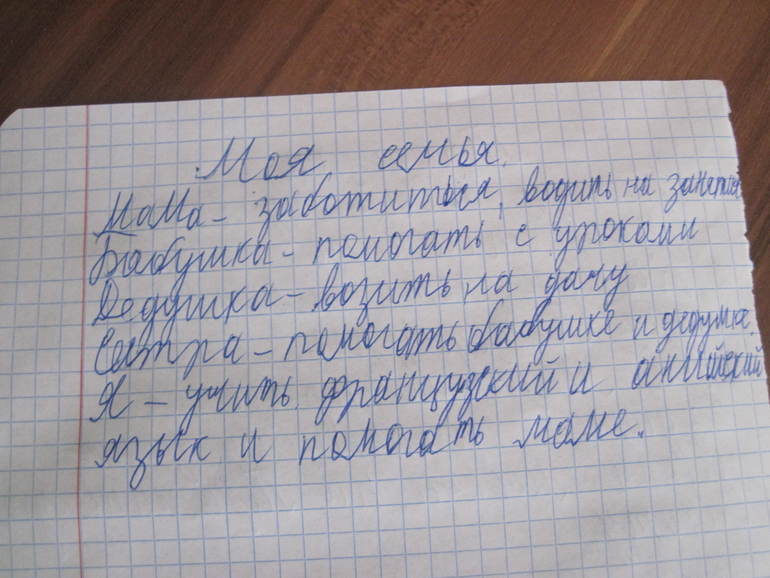 Моя семья.
Мама - заботиться, водить на занятия
Бабушка - помогать с уроками
Дедушка - возить на дачу
Сестра - помогать бабушке и дедушке.
Я - учить французский и английский
язык и помогать маме.